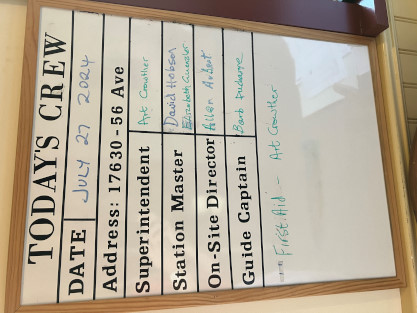 TODAY'S CREW
DATE JULY 27 2024
Address: 17630 - 56 Ave
Superintendent Art Crowther
Station Master David Hobson
Elizabeth
On-Site Director Allan
Guide Captain Barb
First Aid - Art Crowther